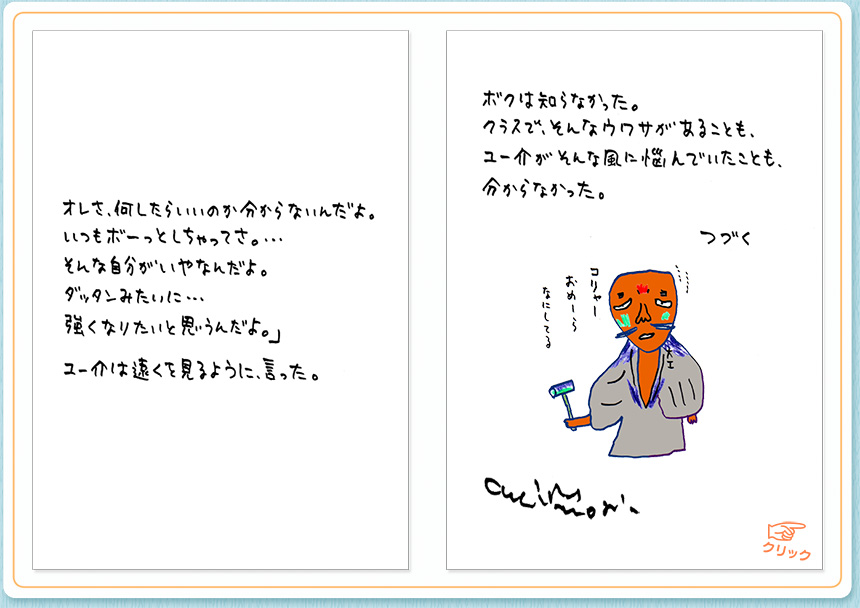 オレさ、何したらいいのか分からないんだよ。
いつもボーっとしちゃってさ。…
そんな自分がいやなんだよ。
ダッタンみたいに…
強くなりたいと思うんだよ。」
ユー介は遠くを見るように、言った。
ボクは知らなかった。
クラスで、そんなウワサがあることも、
ユー介がそんな風に悩んでいたことも、
分からなかった。
つづく
コリャー
おめーら
なにしてる
大工
クリック